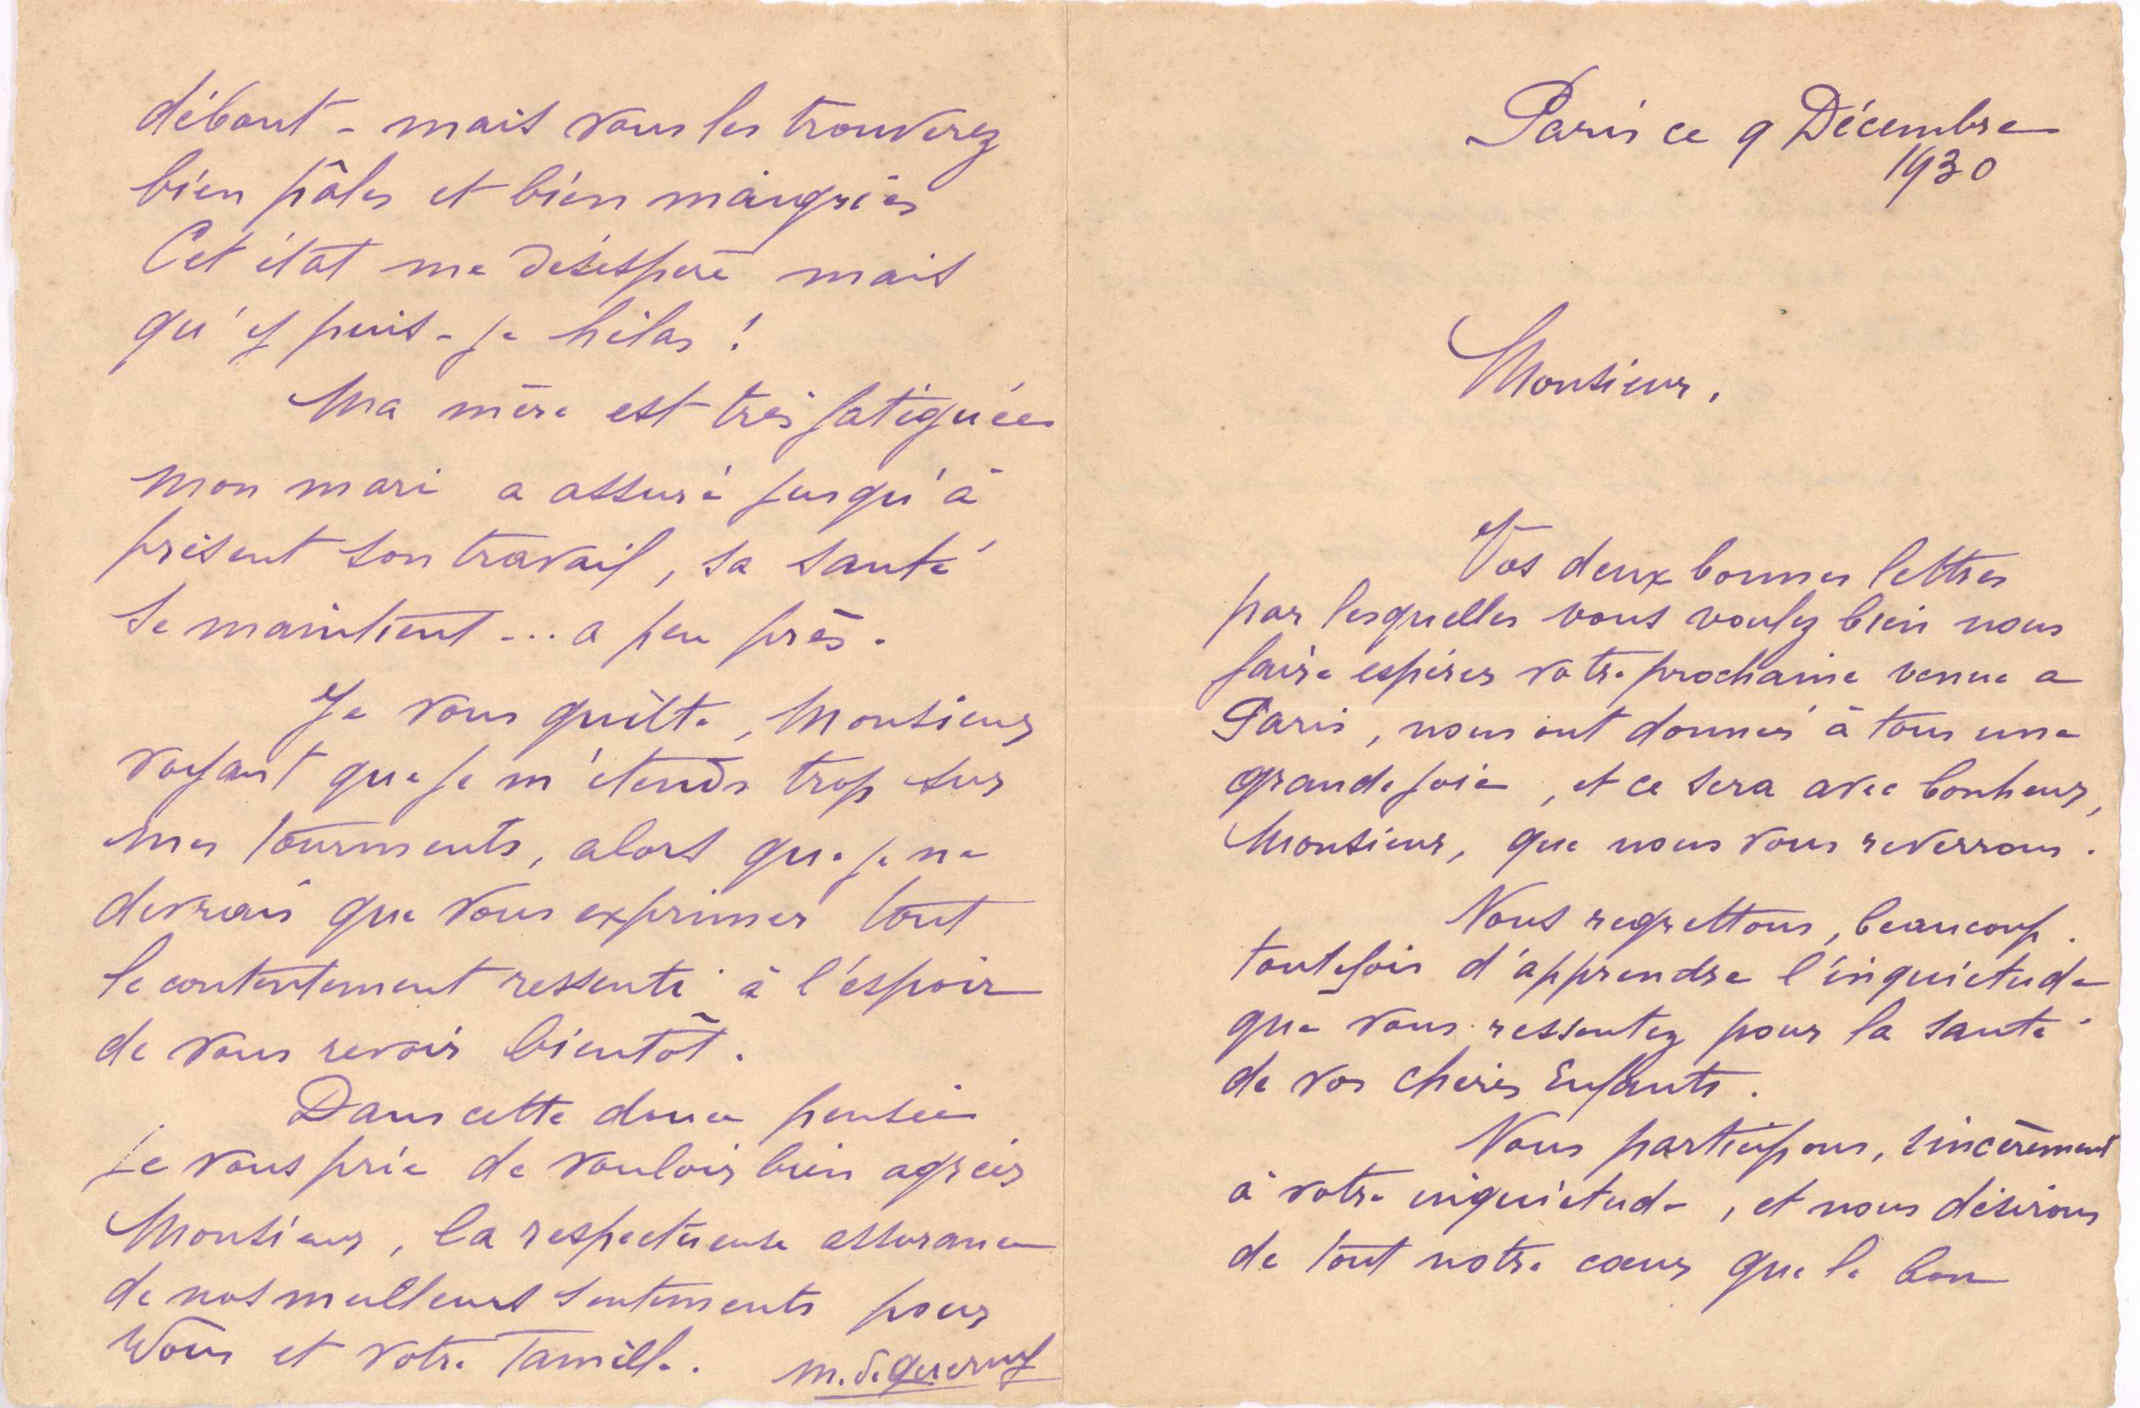 Paris ce 9 Décembre
1930
Monsieur,
Vos deux bonnes lettres
par lesquelles vous voulez bien nous
faire espérer votre prochaine venue a
Paris, nous ont données à tous une
grande joie, et ce sera avec bonheur,
Monsieur, que nous vous reverrons.
Nous regrettons, beaucoup
toutefois d'apprendre l'inquiétude
que vous ressentez pour la santé
de vos chères Enfants.
Nous participons, sincèrement
à votre inquiétude, et nous désirons
de tout notre cœur que le bon
débout - mais vous les trouverez
bien pâles et bien maigries
Cet état me désespère mais
qu'y puis-je hélas !
Ma mère est très fatiguée
mon mari a assuré jusqu'à
présent son travail, sa santé
se maintient ... a peu près.
Je vous quitte, Monsieur
voyant que je m'étends trop sur
mes tourments, alors que je ne
devrais que vous exprimer tout
le contentement ressenti à l'espoir
de vous revoir bientôt.
Dans cette douce pensée
je vous prie de vouloir bien agréer
Monsieur, la respectueuse assurance
de nos meilleurs sentiments pour
Vous et votre Famille. M. de